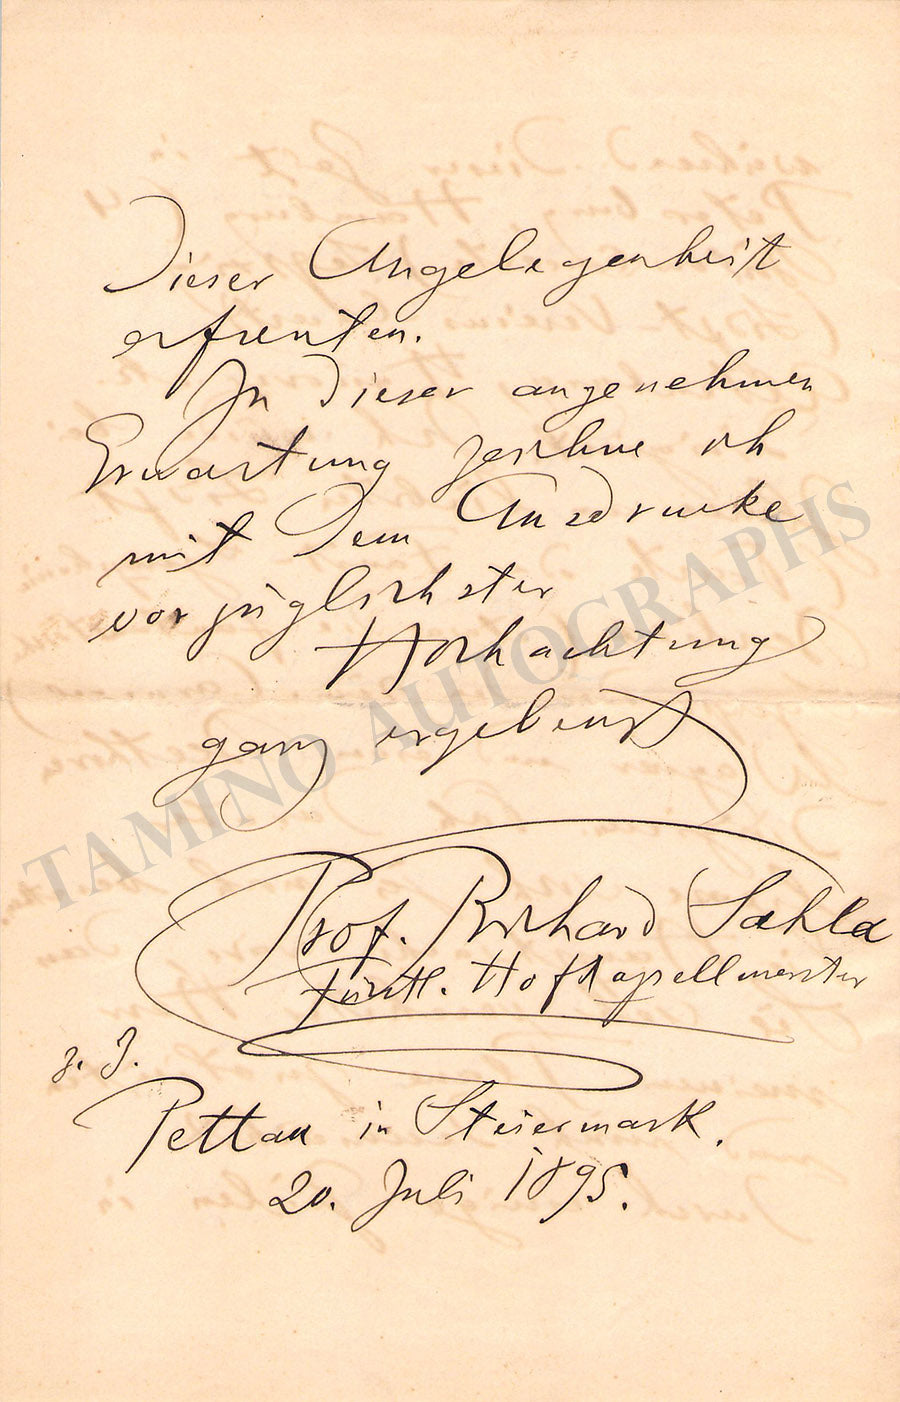 Dieser Angelegenheit
erfreuten.
In dieser angenehmen
Erwartung zeichne ich
mit dem Ausdrucke
vorzüglichster
Hochachtung
ganz ergebenst
Prof. Richard Sahla
Fürstl. Hofkapellmeister
z. Z.
Pettau in Steiermark.
20. Juli 1895.
TAMINO AUTOGRAPHS